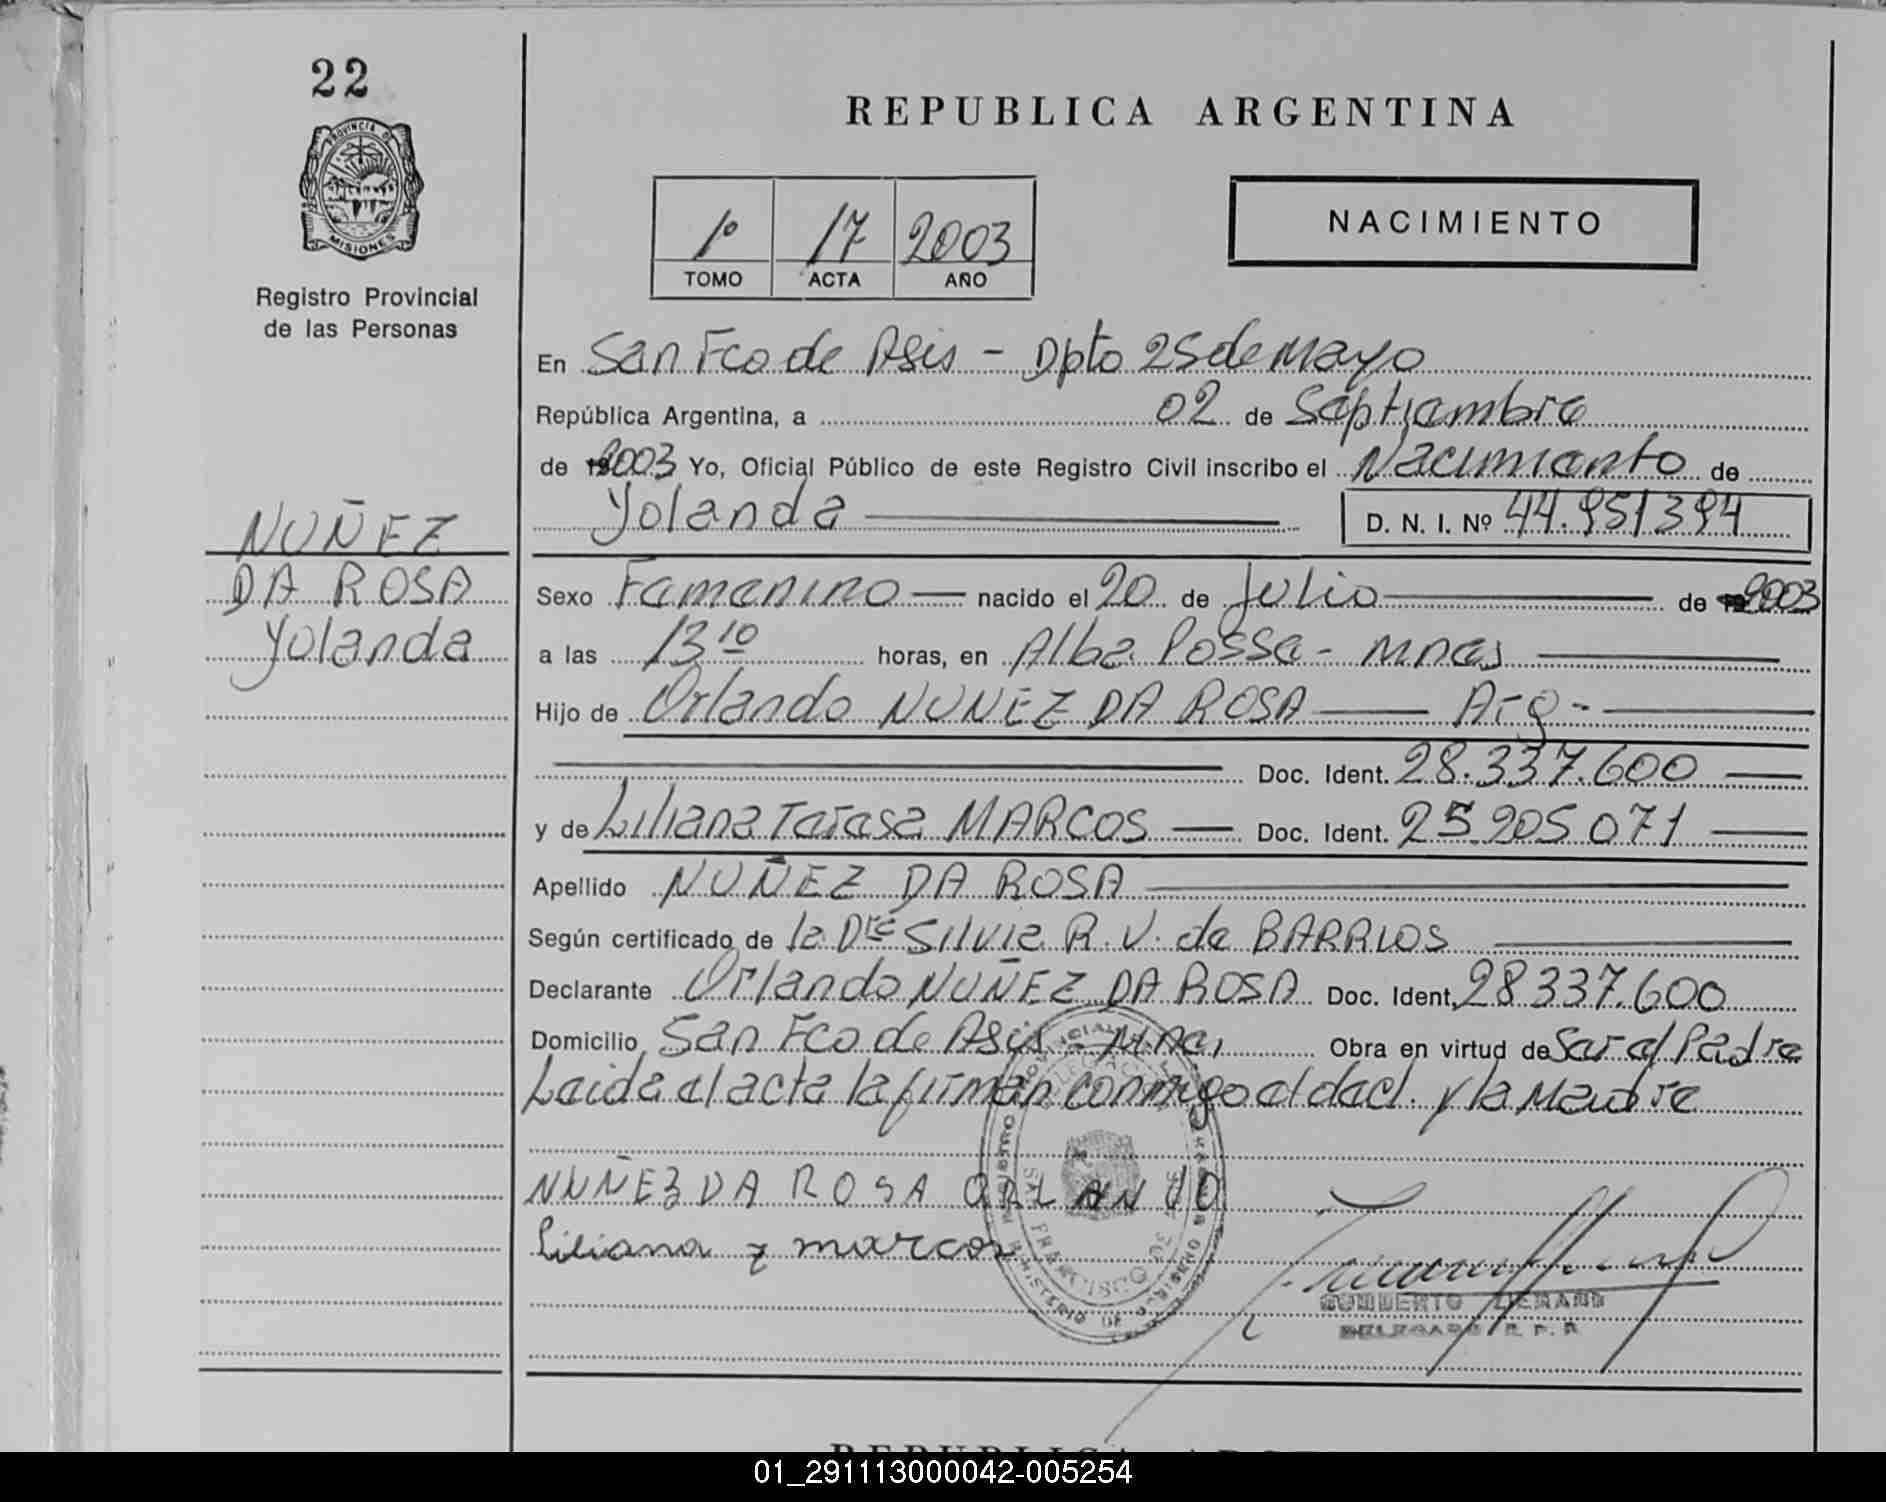 22
PROVINCIA DE
MISIONES
Registro Provincial
de las Personas
NUÑEZ
DA ROSA
Yolanda
REPUBLICA ARGENTINA
1º 17 2003
TOMO ACTA AÑO
NACIMIENTO
En San Fco de Asis - Dpto 25 de Mayo
República Argentina, a 02 de Septiembre
de 2003 Yo, Oficial Público de este Registro Civil inscribo el Nacimiento de
Yolanda D. N. I. Nº 44.951394
Sexo Femenino nacido el 20 de Julio de 2003
a las 13 10 horas, en Alba Posse - Mnes
Hijo de Orlando NUNEZ DA ROSA Arg -
Doc. Ident. 28.337.600
y de Liliana Teresa MARCOS Doc. Ident. 25.905.071
Apellido NUÑEZ DA ROSA
Según certificado de la Dra Silvia R. V. de BARRIOS
Declarante Orlando NUÑEZ DA ROSA Doc. Ident. 28337.600
Domicilio San Fco de Asis - Mnes Obra en virtud de Ser el Padre
Leida el acta la firman conmigo el decl. y la Madre
NUÑEZ DA ROSA ORLANDO
Liliana y marcos
SAN FRANCISCO
MINISTERIO DE
DELEGADO R. P. P.
01_291113000042-005254